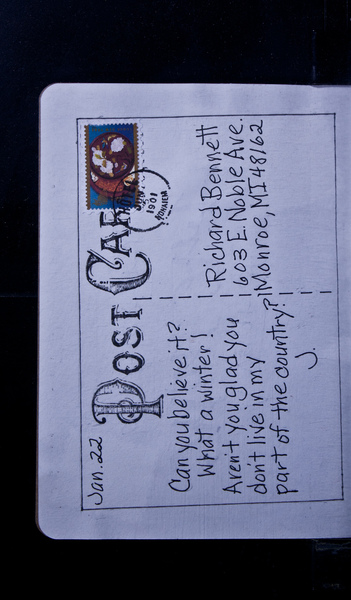 Jan. 22
POST CARD
1901
Can you believe it?
What a winter!
Aren't you glad you
don't live in my
part of the country?
J.
Richard Bennett
603 E. Noble Ave.
Monroe, MI 48162